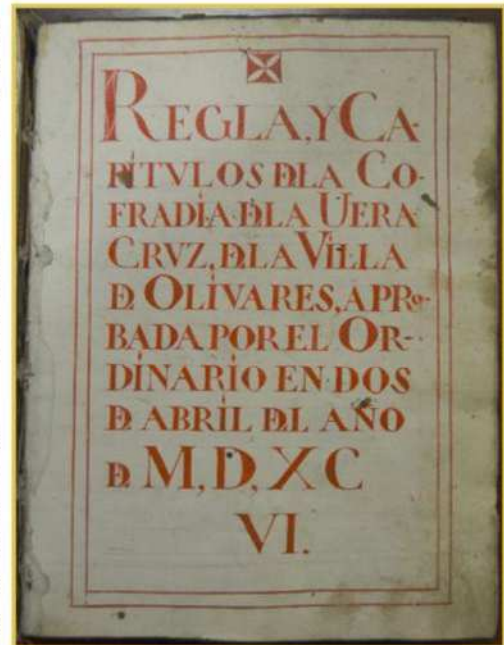 REGLA, Y CA-
PITVLOS DLA CO-
FRADIA DLA UERA
CRVZ, DLA VILLA
D OLIVARES, APRO-
BADA POR EL OR-
DINARIO EN DOS
D ABRIL DL AÑO
D M, D, XC
VI.